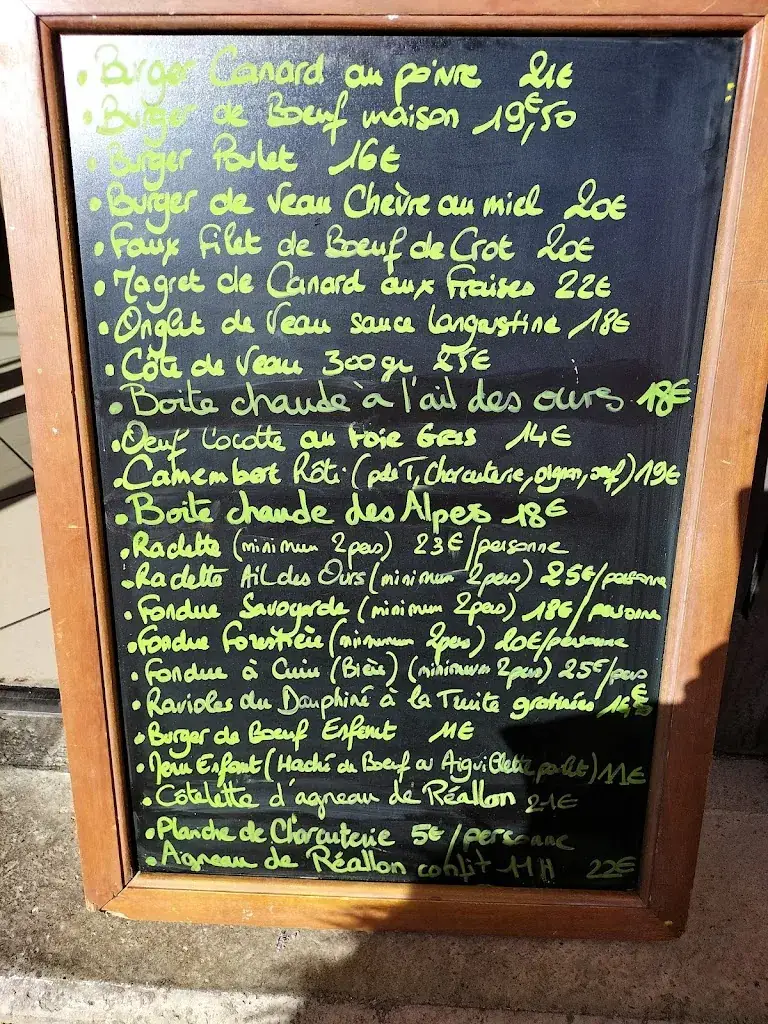 • Burger Canard au poivre 21€
• Burger de Boeuf maison 19€,50
• Burger Poulet 16€
• Burger de Veau Chèvre au miel 20€
• Faux Filet de Boeuf de Crot 20€
• Magret de Canard aux Fraises 22€
• Onglet de Veau sauce langoustine 18€
• Côte de Veau 300gr 25€
• Boite chaude à l'ail des ours 18€
• Oeuf Cocotte au Foie Gras 14€
• Camembert Rôti (pdeT, Charcuterie, oignon, oeuf) 19€
• Boite chaude des Alpes 18€
• Raclette (minimum 2pers) 23€/personne
• Raclette Ail des Ours (minimum 2pers) 25€/personne
• Fondue Savoyarde (minimum 2pers) 18€/personne
• Fondue Forestière (minimum 2pers) 20€/personne
• Fondue à Cuire (Bière) (minimum 2pers) 25€/pers
• Ravioles du Dauphiné à la Truite gratinées
• Burger de Boeuf Enfant 11€
• Menu Enfant (Haché de Boeuf ou Aiguillette poulet) 11€
• Côtelette d'agneau de Réallon 21€
• Planche de Charcuterie 5€/personne
• Agneau de Réallon confit 11H 22€